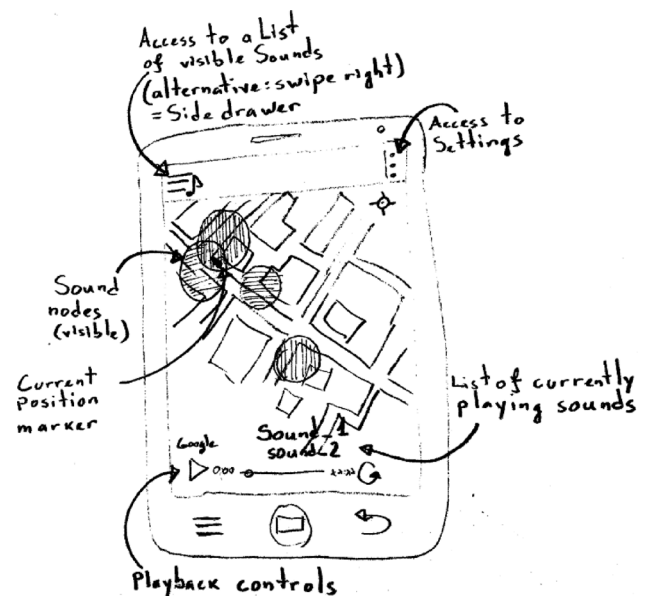 Access to a List
of visible Sounds
(alternative: swipe right)
= Side drawer
Access to
Settings
Sound
nodes
(visible)
Current
Position
marker
List of currently
playing sounds
Google
Sound_1
sound_2
0:00
xx:xx
Playback controls